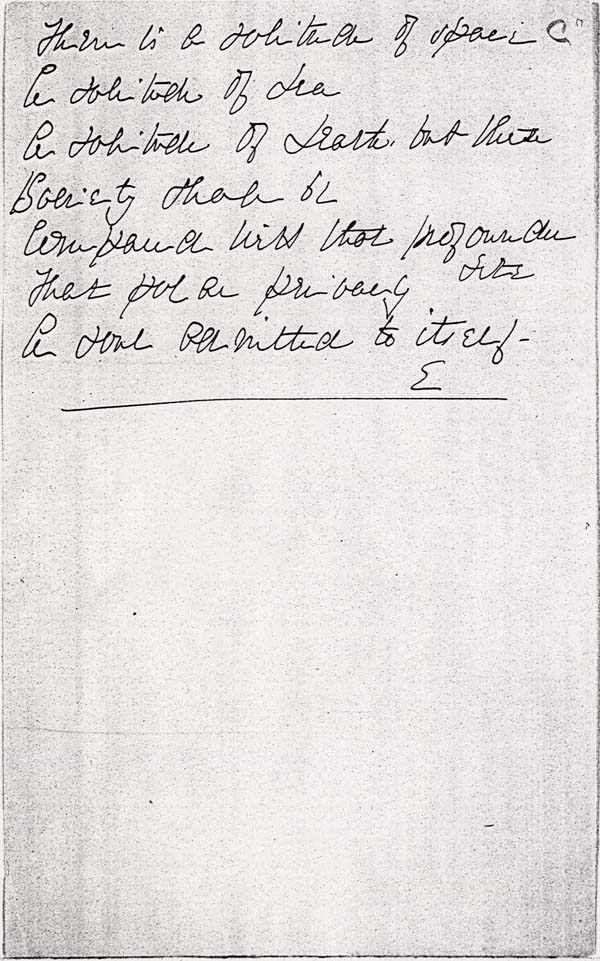 There is a solitude of space C"
A solitude of sea
A solitude of death, but these
Society shall be
Compared with that profounder
site
That polar privacy
A soul admitted to itself -
E